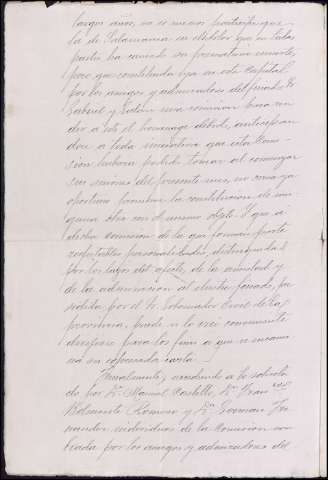 largos años, no es menos partícipe que
la de Salamanca es debido que en todas
partes ha tenido su
pero, que constituida ya en esta Capital
por los amigos y admiradores del finado Sr
Gabriel y Galán una comision para ren
dir a este el homenage debido, anticipan
dose a toda iniciativa que esta Comi
sion hubiera podido tomar al comenzar
sus sesiones del presente mes, no cree ya
oportuno tambien la constitucion de nin
guna otra con el mismo objeto. y que a
dicha Comision de la que forman parte
respetables personalidades, distinguidas
por los lazos del afecto, de la amistad y
de la admiracion al ilustre finado, pre
sidida por el Sr. Gobernador Civil de la
provincia, puede si lo cree conveniente
dirigirse para los fines a que se encami
na su carta.
Finalmente, accediendo a lo solicita
do por Dn. Manuel Castillo, Dn. Fran.co
Romero y Dn. German Fer
nandez individuos de la Comision nom
brada por los amigos y admiradores del